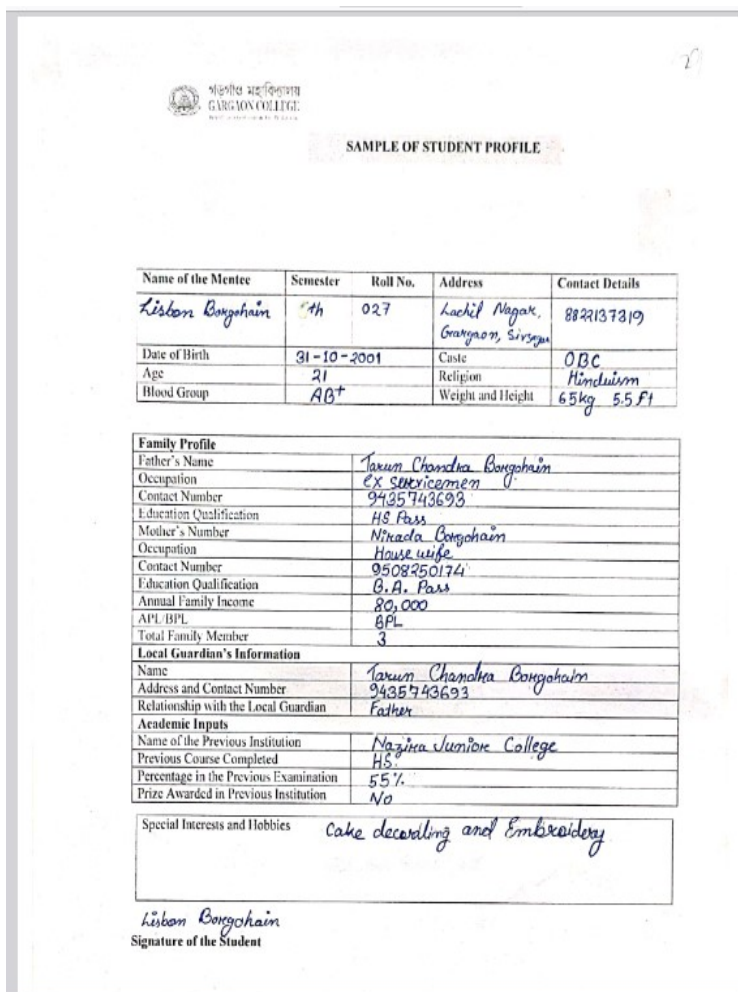 27
গড়গাঁও মহাবিদ্যালয়
GARGAON COLLEGE
SAMPLE OF STUDENT PROFILE
Name of the Mentee Semester Roll No. Address Contact Details
Lisbon Borgohain th 027 Lachil Nagar, 8822137319
Gargaon,
Date of Birth 31-10-2001 Caste OBC
Age 21 Religion Hinduism
Blood Group AB+ Weight and Height 65kg 5.5 ft
Family Profile
Father's Name Tarun Chandra Borgohain
Occupation ex servicemen
Contact Number 9435743693
Education Qualification HS Pass
Mother's Number Nirada Borgohain
Occupation House wife
Contact Number 9508250174
Education Qualification B.A. Pass
Annual Family Income 80,000
APL/BPL BPL
Total Family Member 3
Local Guardian's Information
Name Tarun Chandra Borgohain
Address and Contact Number 9435743693
Relationship with the Local Guardian Father
Academic Inputs
Name of the Previous Institution Nazira Junior College
Previous Course Completed HS.
Percentage in the Previous Examination 55%
Prize Awarded in Previous Institution No
Special Interests and Hobbies Cake and Embroidery
Lisbon Borgohain
Signature of the Student